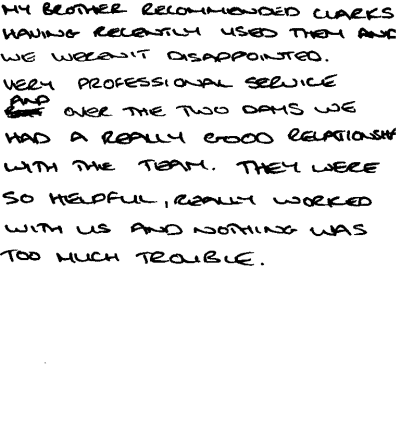 MY BROTHER RECOMMENDED CLARKS
HAVING RECENTLY USED THEM AND
WE WEREN'T DISAPPOINTED.
VERY PROFESSIONAL SERVICE
AND OVER THE TWO DAYS WE
HAD A REALLY GOOD RELATIONSHIP
WITH THE TEAM. THEY WERE
SO HELPFUL, REALLY WORKED
WITH US AND NOTHING WAS
TOO MUCH TROUBLE.